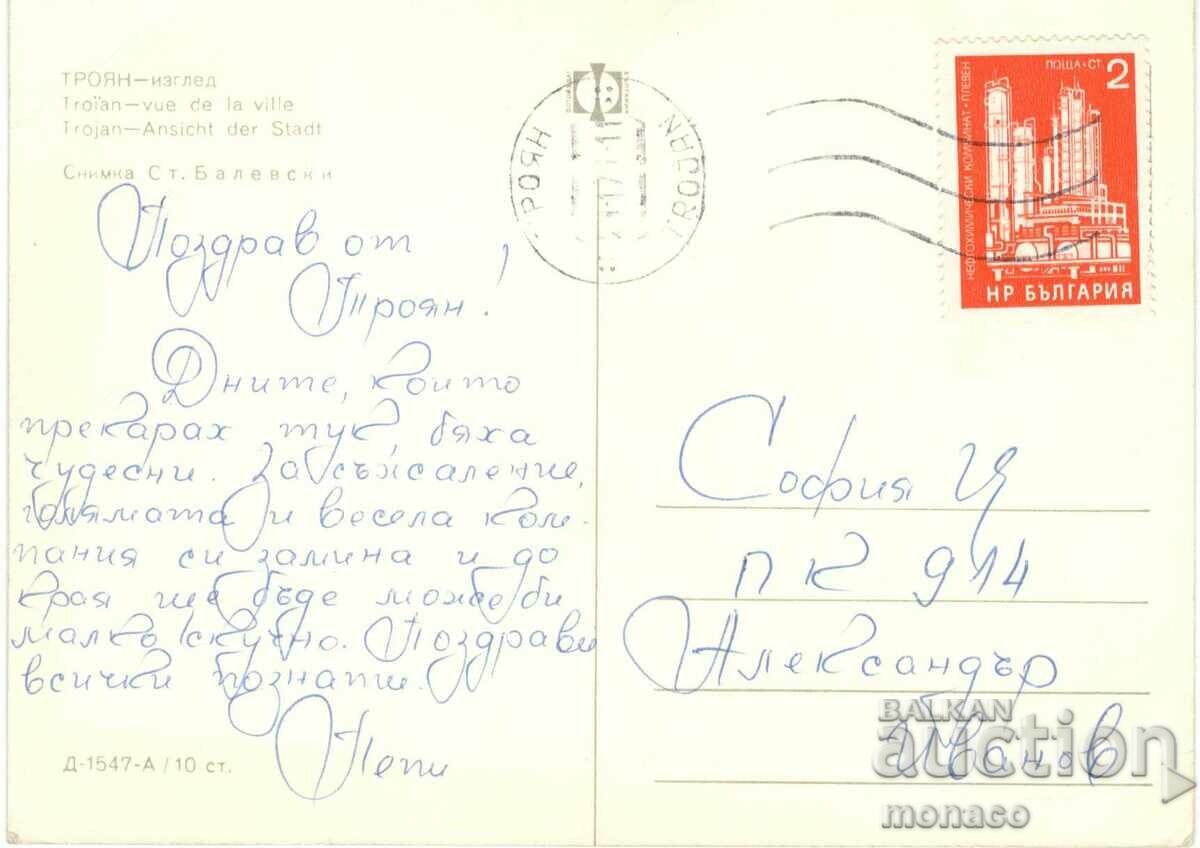 ТРОЯН—изглед
Troïan—vue de la ville
Trojan—Ansicht der Stadt
Снимка Ст. Балевски
Поздрав от
Троян!
Дните, които
прекарах тук, бяха
чудесни. За съжсаление,
голямата и весела ком-
пания си замина и до
края ще бъде може би
малко скучно. Поздрави
всички познати.
Пепи
Д-1547-А / 10 ст.
ТРОЯН
TROJAN
ПОЩА • СТ. 2
НЕФТОХИМИЧЕСКИ КОМБИНАТ • ПЛЕВЕН
НР БЪЛГАРИЯ
София Ц
ПК 914
Александър
Иванов
BALKAN
auction
monaco